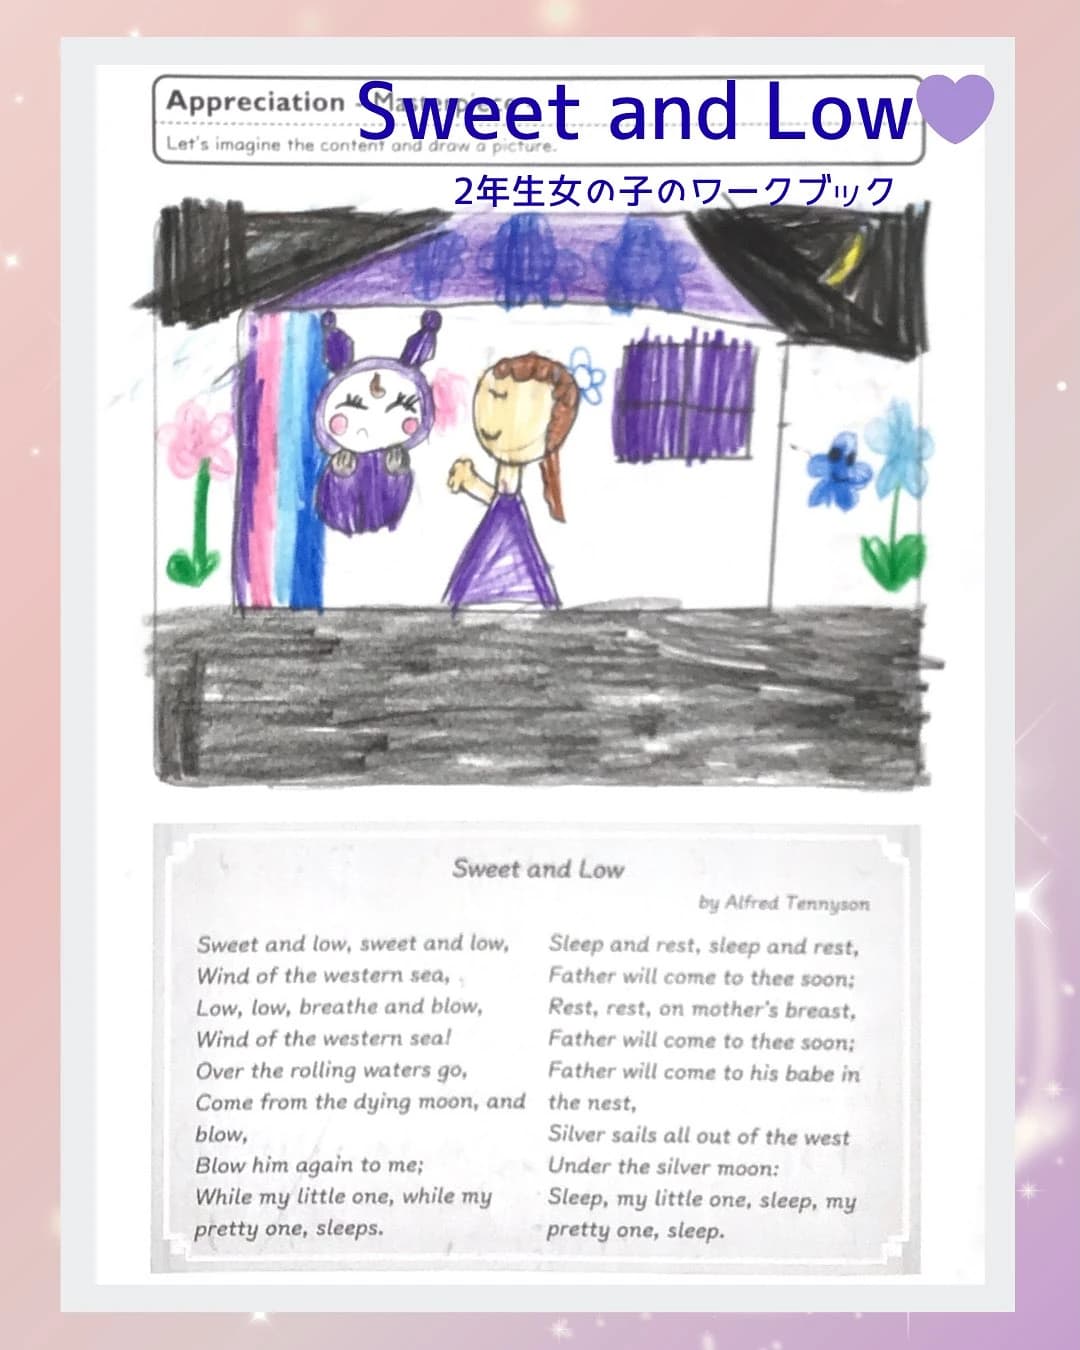 Appreciation -
Sweet and Low
Let's imagine the content and draw a picture.
2年生女の子のワークブック
Sweet and Low
by Alfred Tennyson
Sweet and low, sweet and low,
Wind of the western sea,
Low, low, breathe and blow,
Wind of the western sea!
Over the rolling waters go,
Come from the dying moon, and
blow,
Blow him again to me;
While my little one, while my
pretty one, sleeps.
Sleep and rest, sleep and rest,
Father will come to thee soon;
Rest, rest, on mother's breast,
Father will come to thee soon;
Father will come to his babe in
the nest,
Silver sails all out of the west
Under the silver moon:
Sleep, my little one, sleep, my
pretty one, sleep.